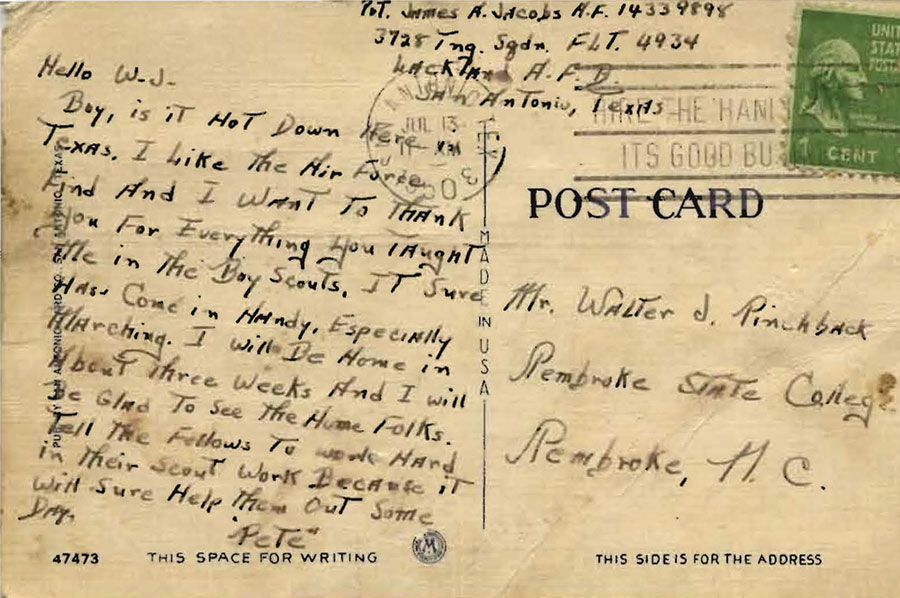 Pvt. James A. Jacobs A.F. 14339898
3728 Tng. Sqdn. FLT. 4934
Lackland A.F.B.
San Antonio, Texas
Hello W-J-
Boy, is iT HoT Down Here
Texas. I Like the Air Force
Find And I WanT To Thank
You For Everything You TaughT
Me in The Boy Scouts. IT Sure
Has Come in Handy, Especially
Marching. I will Be Home in
About Three Weeks And I will
Be Glad To See The Home Folks.
Tell The Fellows To work Hard
in Their Scout Work Because iT
Will Sure Help Them OuT Some
Day.
"PeTe"
JUL 13
HIRE THE
ITS GOOD
UNIT
STAT
POSTA
1 CENT
POST CARD
Mr. Walter J. Pinchback
Pembroke State College
Pembroke, N.C.
MADE IN USA
SAN ANTONIO, TEXAS
47473
THIS SPACE FOR WRITING
M
THIS SIDE IS FOR THE ADDRESS